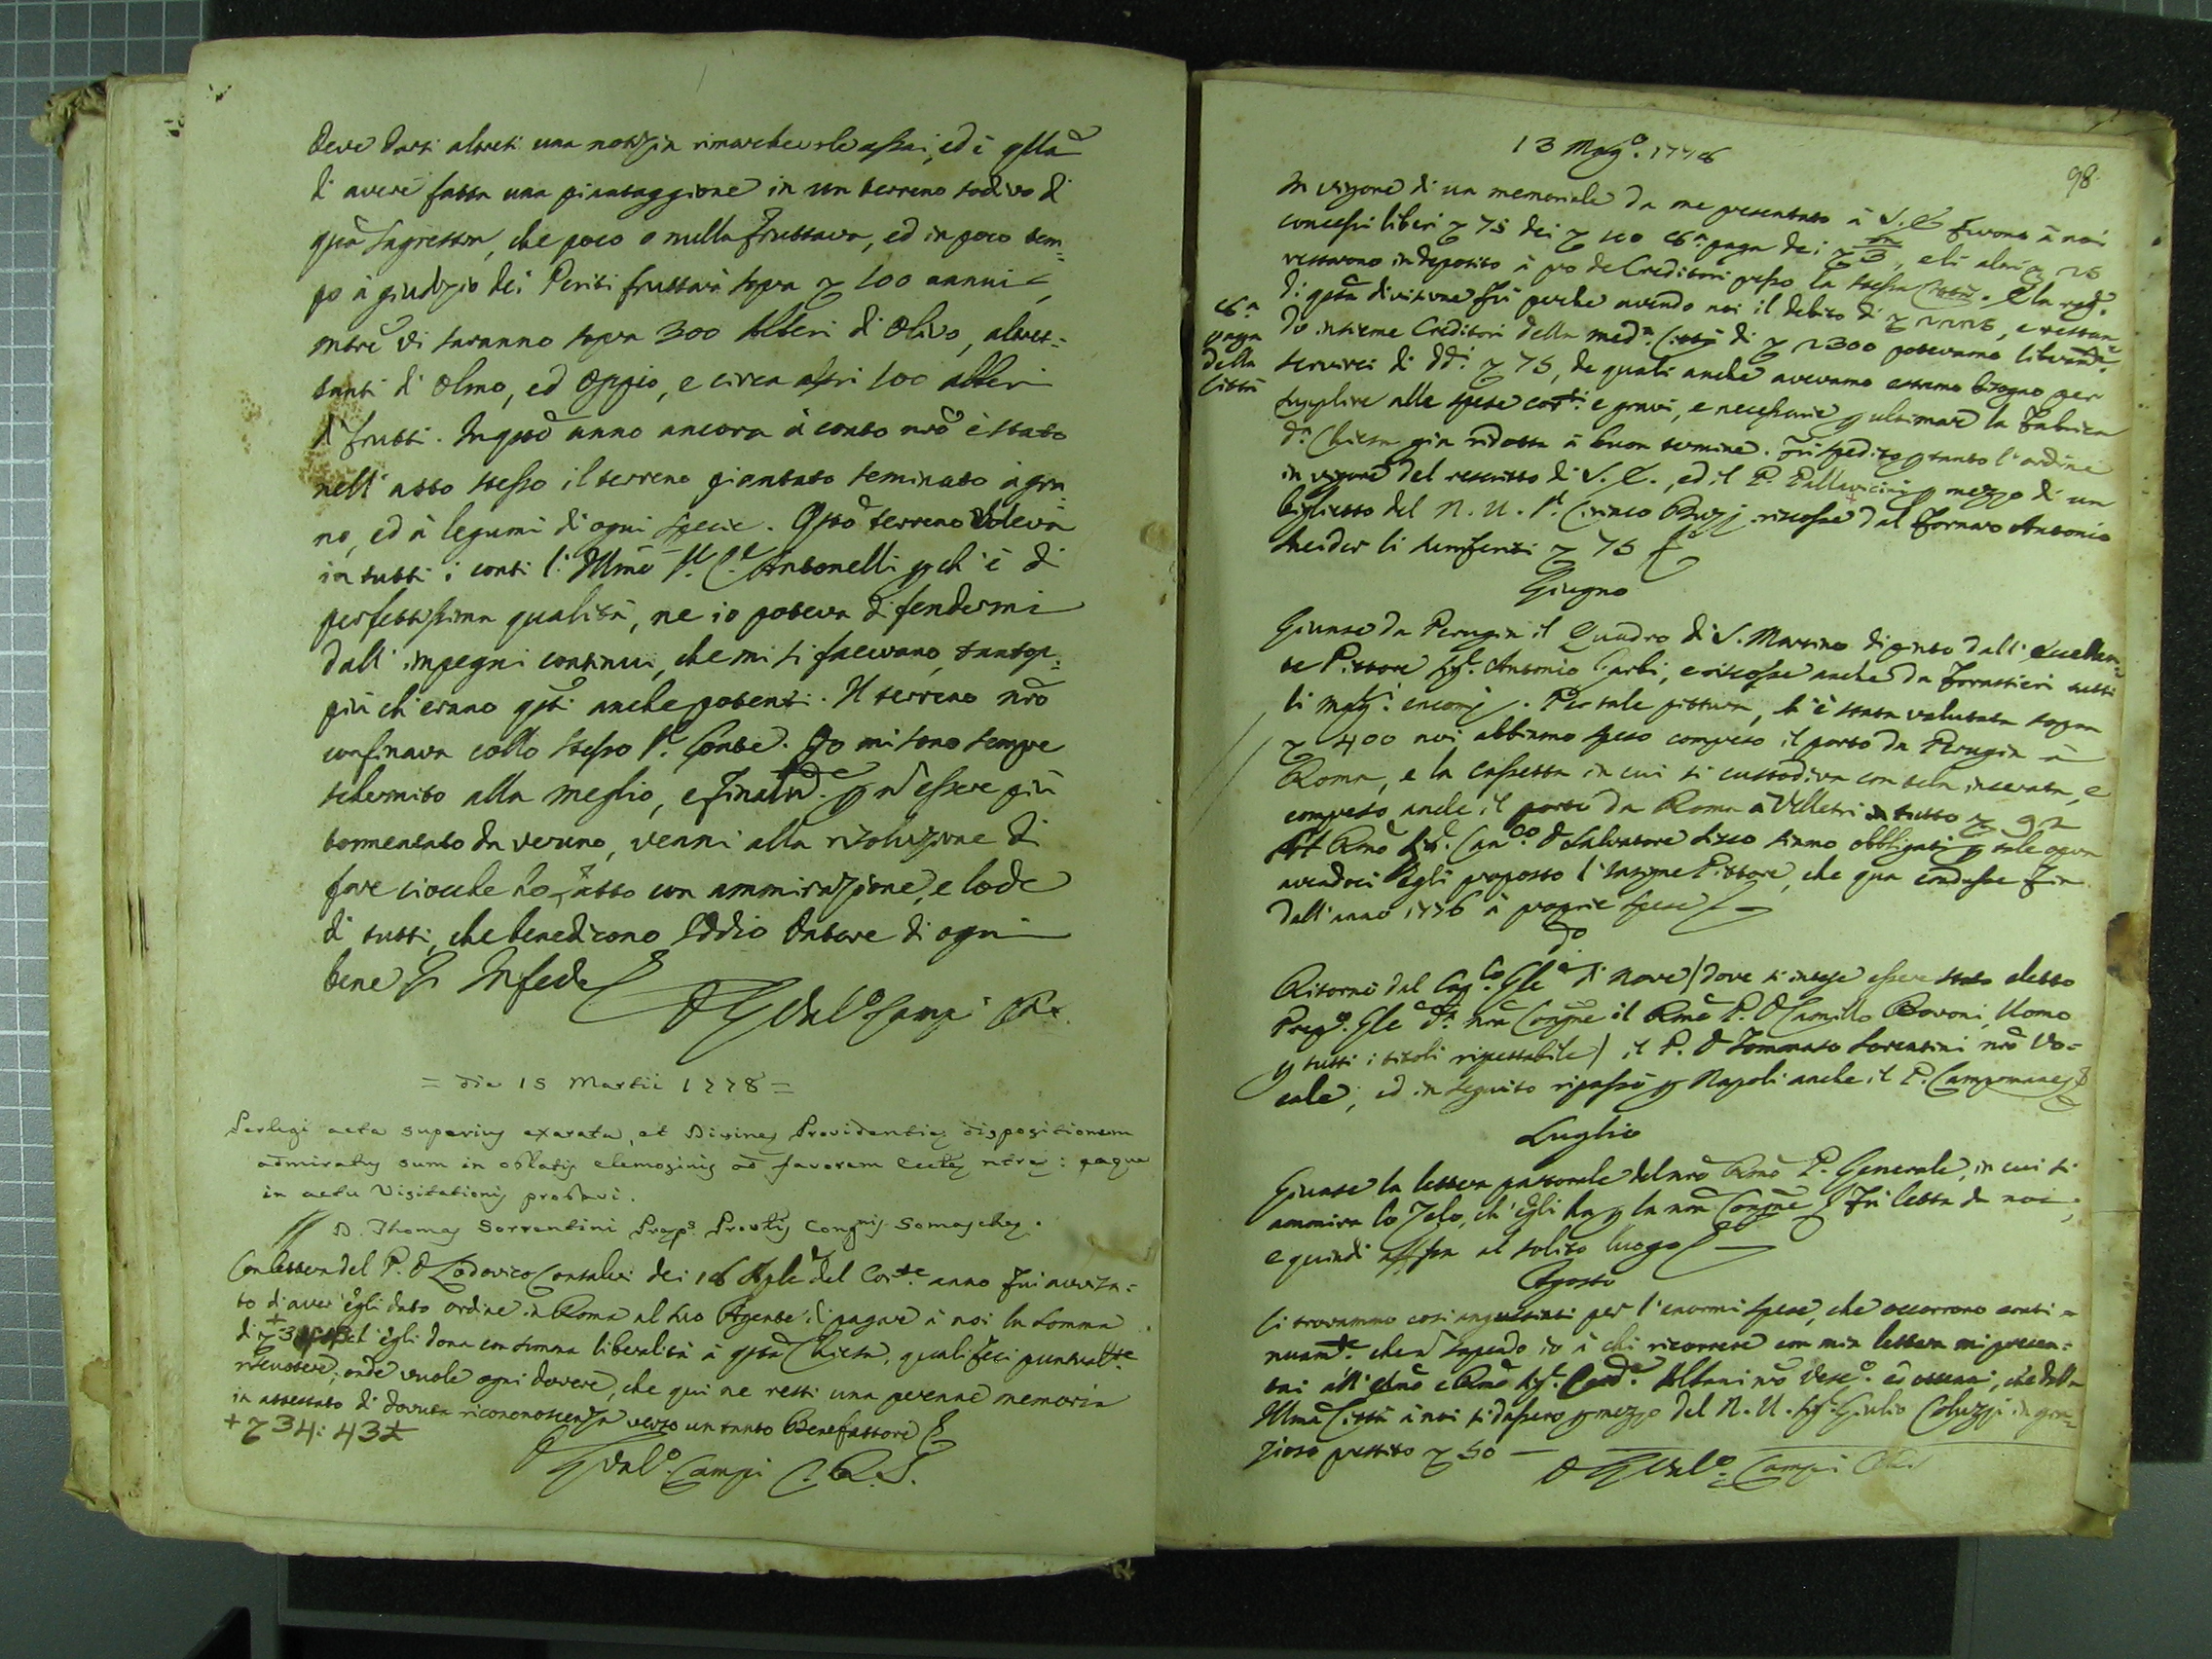 Deve darsi altresi una notizia rimarchevole assai, ed è qlla
di avere fatta una piantaggione in un terreno sodivo di
qsta Sagrestia, che poco o nulla fruttava, ed in poco tem=
po à giudizio dei Periti fruttarà sopra 100 annui,
mtre vi saranno sopra 300 Alberi di Olivo, altret=
tanti di Olmo, ed Oppio, e circa altri 100 alberi
di frutti. In qsto anno ancora à conto nrō è stato
nell' atto stesso il terreno piantato seminato à gra
no, ed à legumi di ogni specie. Qsto terreno voleva
in tutti i conti l' Illmo Sr. Cte Antonelli pch' è di
perfettissima qualità, ne io poteva difendermi
dall' impegni continui, che mi si facevano, tantop=
più ch' erano qsti anche potenti. Il terreno nrō
confinava collo stesso Sr. Conte. Io mi sono sempre
schermito alla meglio, e finalmte. p nō essere più
tormentato da veruno, venni alla risoluzione di
fare ciocche ho fatto con ammirazione, e lode
di tutti, che benedicono Iddio Datore di ogni
bene In fede
D. Gdaldo Campi
= die 15 Martii 1778 =
Perlegi acta superius exarata, et Divinæ Providentiæ dispositionem
admiratus sum in oblatis elemosinis ad favorem Eccłæ ntræ: eaque
in actu Visitationis probavi.
D. Thomas Sorrentini Præps. Provlis Congnis. Somaschæ.
Con lettera del P. D. Lodovico Consalvi dei 16 Aple del Corte. anno fui avvisa=
to di aver' egli dato ordine in Roma al suo Agente di pagare à noi la somma
di + 3 ch' egli dona con somma liberalità à qsta Chiesa, quali feci puntualte
riscuotere; onde vuole ogni dovere, che qui ne resti una perenne memoria
in attestato di dovuta riconoscenza verso un tanto Benefattore
+ 34: 43½
Gdaldo. Campi C.R.S.
98
13 Magº. 1778
In vigore di un memoriale da me presentato à S. E. furono à noi
concessi liberi 75 dei 100 6ª. paga dei, e li altri 25
restarono in deposito à pro de Creditori presso la stessa Città. E la rage.
6ª
paga
della
Città
di qsta divisione fù perche avendo noi il debito di, e restan=
do insieme Creditori della meda. Città di 2300 potevamo liberamte.
servirci di ddi. 75, de quali anche avevamo estremo bisogno per
supplire alle spese corti. e gravi, e necessarie p ultimare la Fabrica
da. Chiesa gia ridotta à buon termine. Fù spedito ptanto l' ordine
in vigore del rescritto di S. E., ed il P. Pallavicini p mezzo di un
biglietto del N. U. Sr. riscosse dal Fornaro Antonio
li suriferiti 75
Giugno
Giunse da Perugia il Quadro di S. Martino dipinto dall' eccellen=
te Pittore Sigr. Antonio Garbi, e riscosse anche da Forastieri tutti
li magri. encomj. Per tale pittura, ch' è stata valutata sopra
400 noi abbiamo speso compreso il porto da Perugia à
Roma, e la Cassetta in cui si custodiva con tela incerata, e
compreso anche il porto da Roma à Velletri in tutto 92
Al Rmō Sigr. Cano. D. Salvatore siamo obbligati p tale opra
avendoci egli proposto l' insigne Pittore, che qua condusse fin
dall' anno 1776 à proprie spese
dº.
Ritornò dal Capº. Gle di Nove (dove s' intese essere stato eletto
Prepº. Gle da. nra Congne il Rmō P. D. Camillo Bovoni, Uomo
p tutti i titoli rispettabile) il P. D. Tommaso Sorentini nrō Vo=
cale, ed in seguito ripassò p Napoli anche il P. Campomanes
Luglio
Giunse la lettera pastorale del nrō Rmō P. Generale, in cui si
ammira lo Zelo, ch' Egli ha p la nrā Congne Fù letta da noi,
e quindi affissa al solito luogo
Agosto
Ci trovammo così angustiati per l' enormi spese, che occorrono conti=
nuamte. che nō sapendo io à chi ricorrere con mia lettera mi presen=
tai all' Emō e Rmō Sigr. Cardle. Albani nrō Vescº. ed ottenni, che dalla
Illmā Città à noi si dassero p mezzo del N. U. Sigr. Giulio Coluzzi in gra=
zioso prestito 50 —
D. Gdaldo. Campi